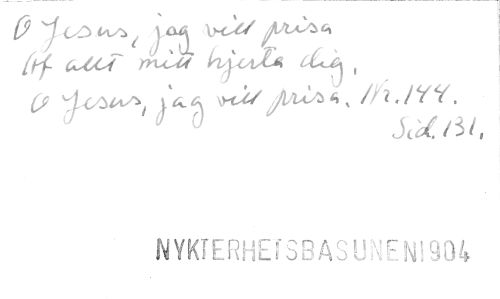 O Jesus, jag vill prisa
Af allt mitt hjerta dig.
O Jesus, jag vill prisa. Nr. 144.
Sid. 131.
NYKTERHETSBASUNEN 1904